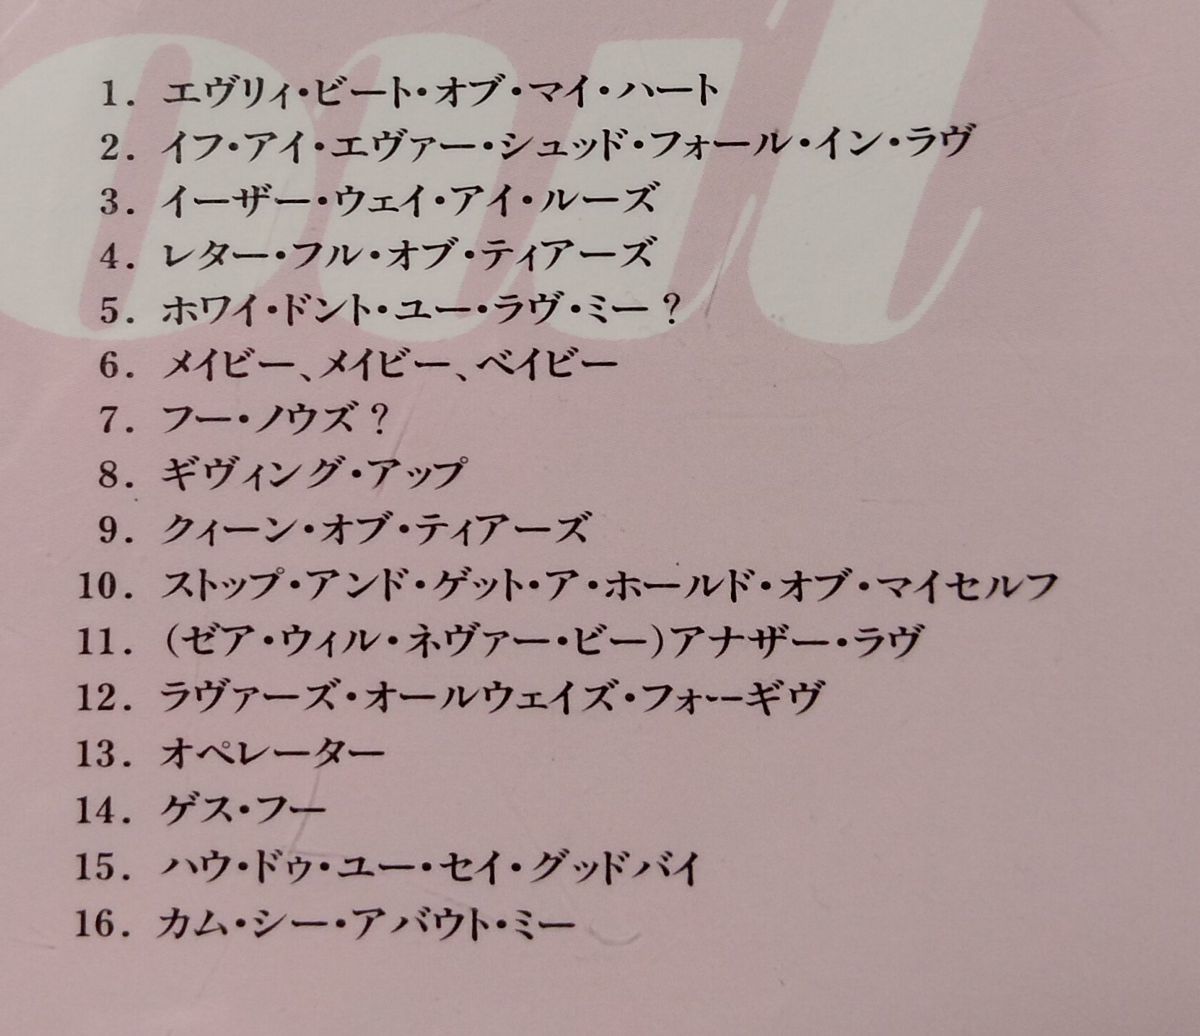 oul
1. エヴリィ・ビート・オブ・マイ・ハート
2. イフ・アイ・エヴァー・シュッド・フォール・イン・ラヴ
3. イーザー・ウェイ・アイ・ルーズ
4. レター・フル・オブ・ティアーズ
5. ホワイ・ドント・ユー・ラヴ・ミー？
6. メイビー、メイビー、ベイビー
7. フー・ノウズ？
8. ギヴィング・アップ
9. クィーン・オブ・ティアーズ
10. ストップ・アンド・ゲット・ア・ホールド・オブ・マイセルフ
11. (ゼア・ウィル・ネヴァー・ビー)アナザー・ラヴ
12. ラヴァーズ・オールウェイズ・フォーギヴ
13. オペレーター
14. ゲス・フー
15. ハウ・ドゥ・ユー・セイ・グッドバイ
16. カム・シー・アバウト・ミー